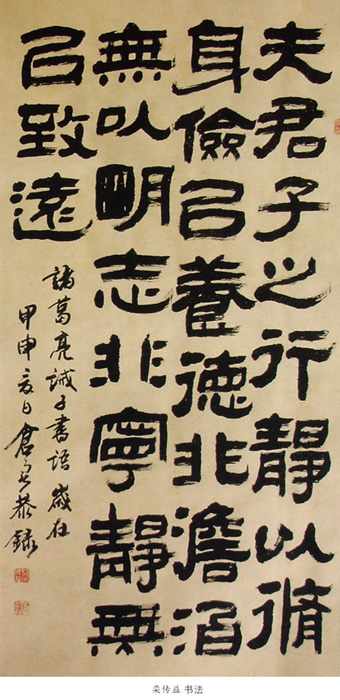 夫君子之行靜以脩
身儉㠯養德非澹泊
無以朙志非寧靜無
㠯致遠
諸葛亮誡子書語歲在
甲申夏日倉恭錄
栾传益 书法